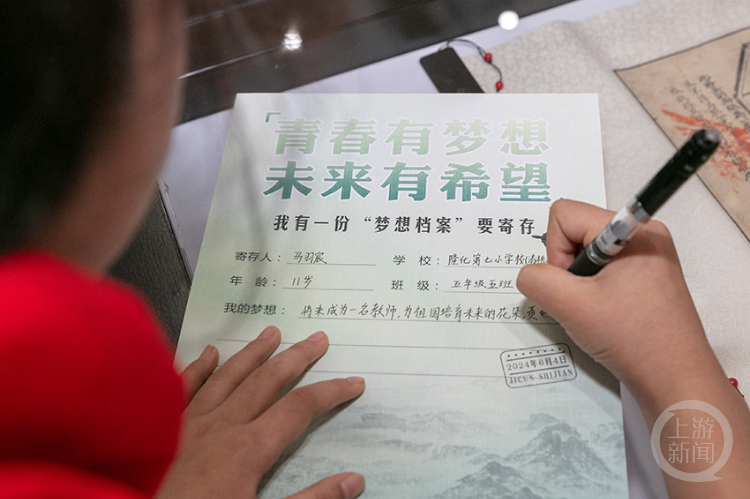 「青春有梦想
未来有希望
我有一份“梦想档案”要寄存
寄存人：马羽宸 学校：隆化第七小学校
年龄：11岁 班级：五年级五班
我的梦想：将来成为一名教师，为祖国培育未来的花朵，
2024年6月4日
JICUN-SHIJIAN
上游新闻